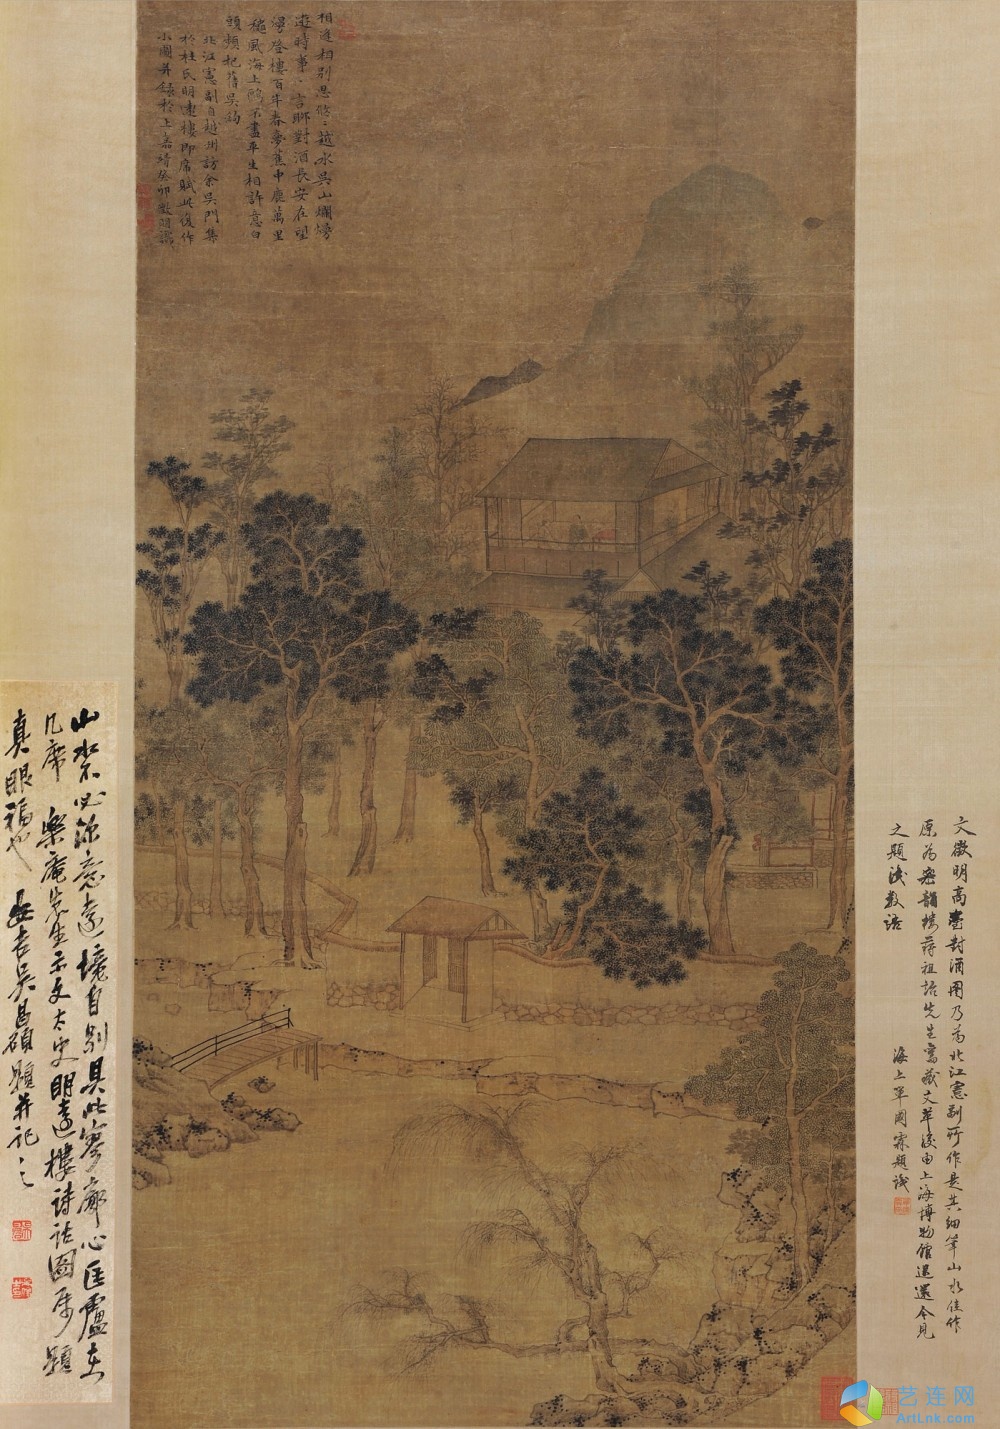 相逢相别思悠悠越水吴山烂熳
遊時事
言聊對酒長安在望
漫登樓百年春夢蕉中鹿萬里
風海上鷗不盡平生相許意白
頭頻把舊吳鈎
北江憲副自越州訪余吳門集
於杜氏明遠樓即席賦此復作
小圖并錄於上嘉靖癸卯徵明識
文徵明高臺對酒圖乃為北江憲副所作是其細筆山水佳作
原為密韻樓蔣祖詒先生舊藏文革後由上海博物館退還今見
之題識數語
海上單國霖題識
山水不必深意遠境自別具此寥廓心匡廬在
几席 樂庵先生示文太史明遠樓詩話圖屬題
真眼福也 安吉吳昌碩題并記之
艺连网
ArtLnk.com